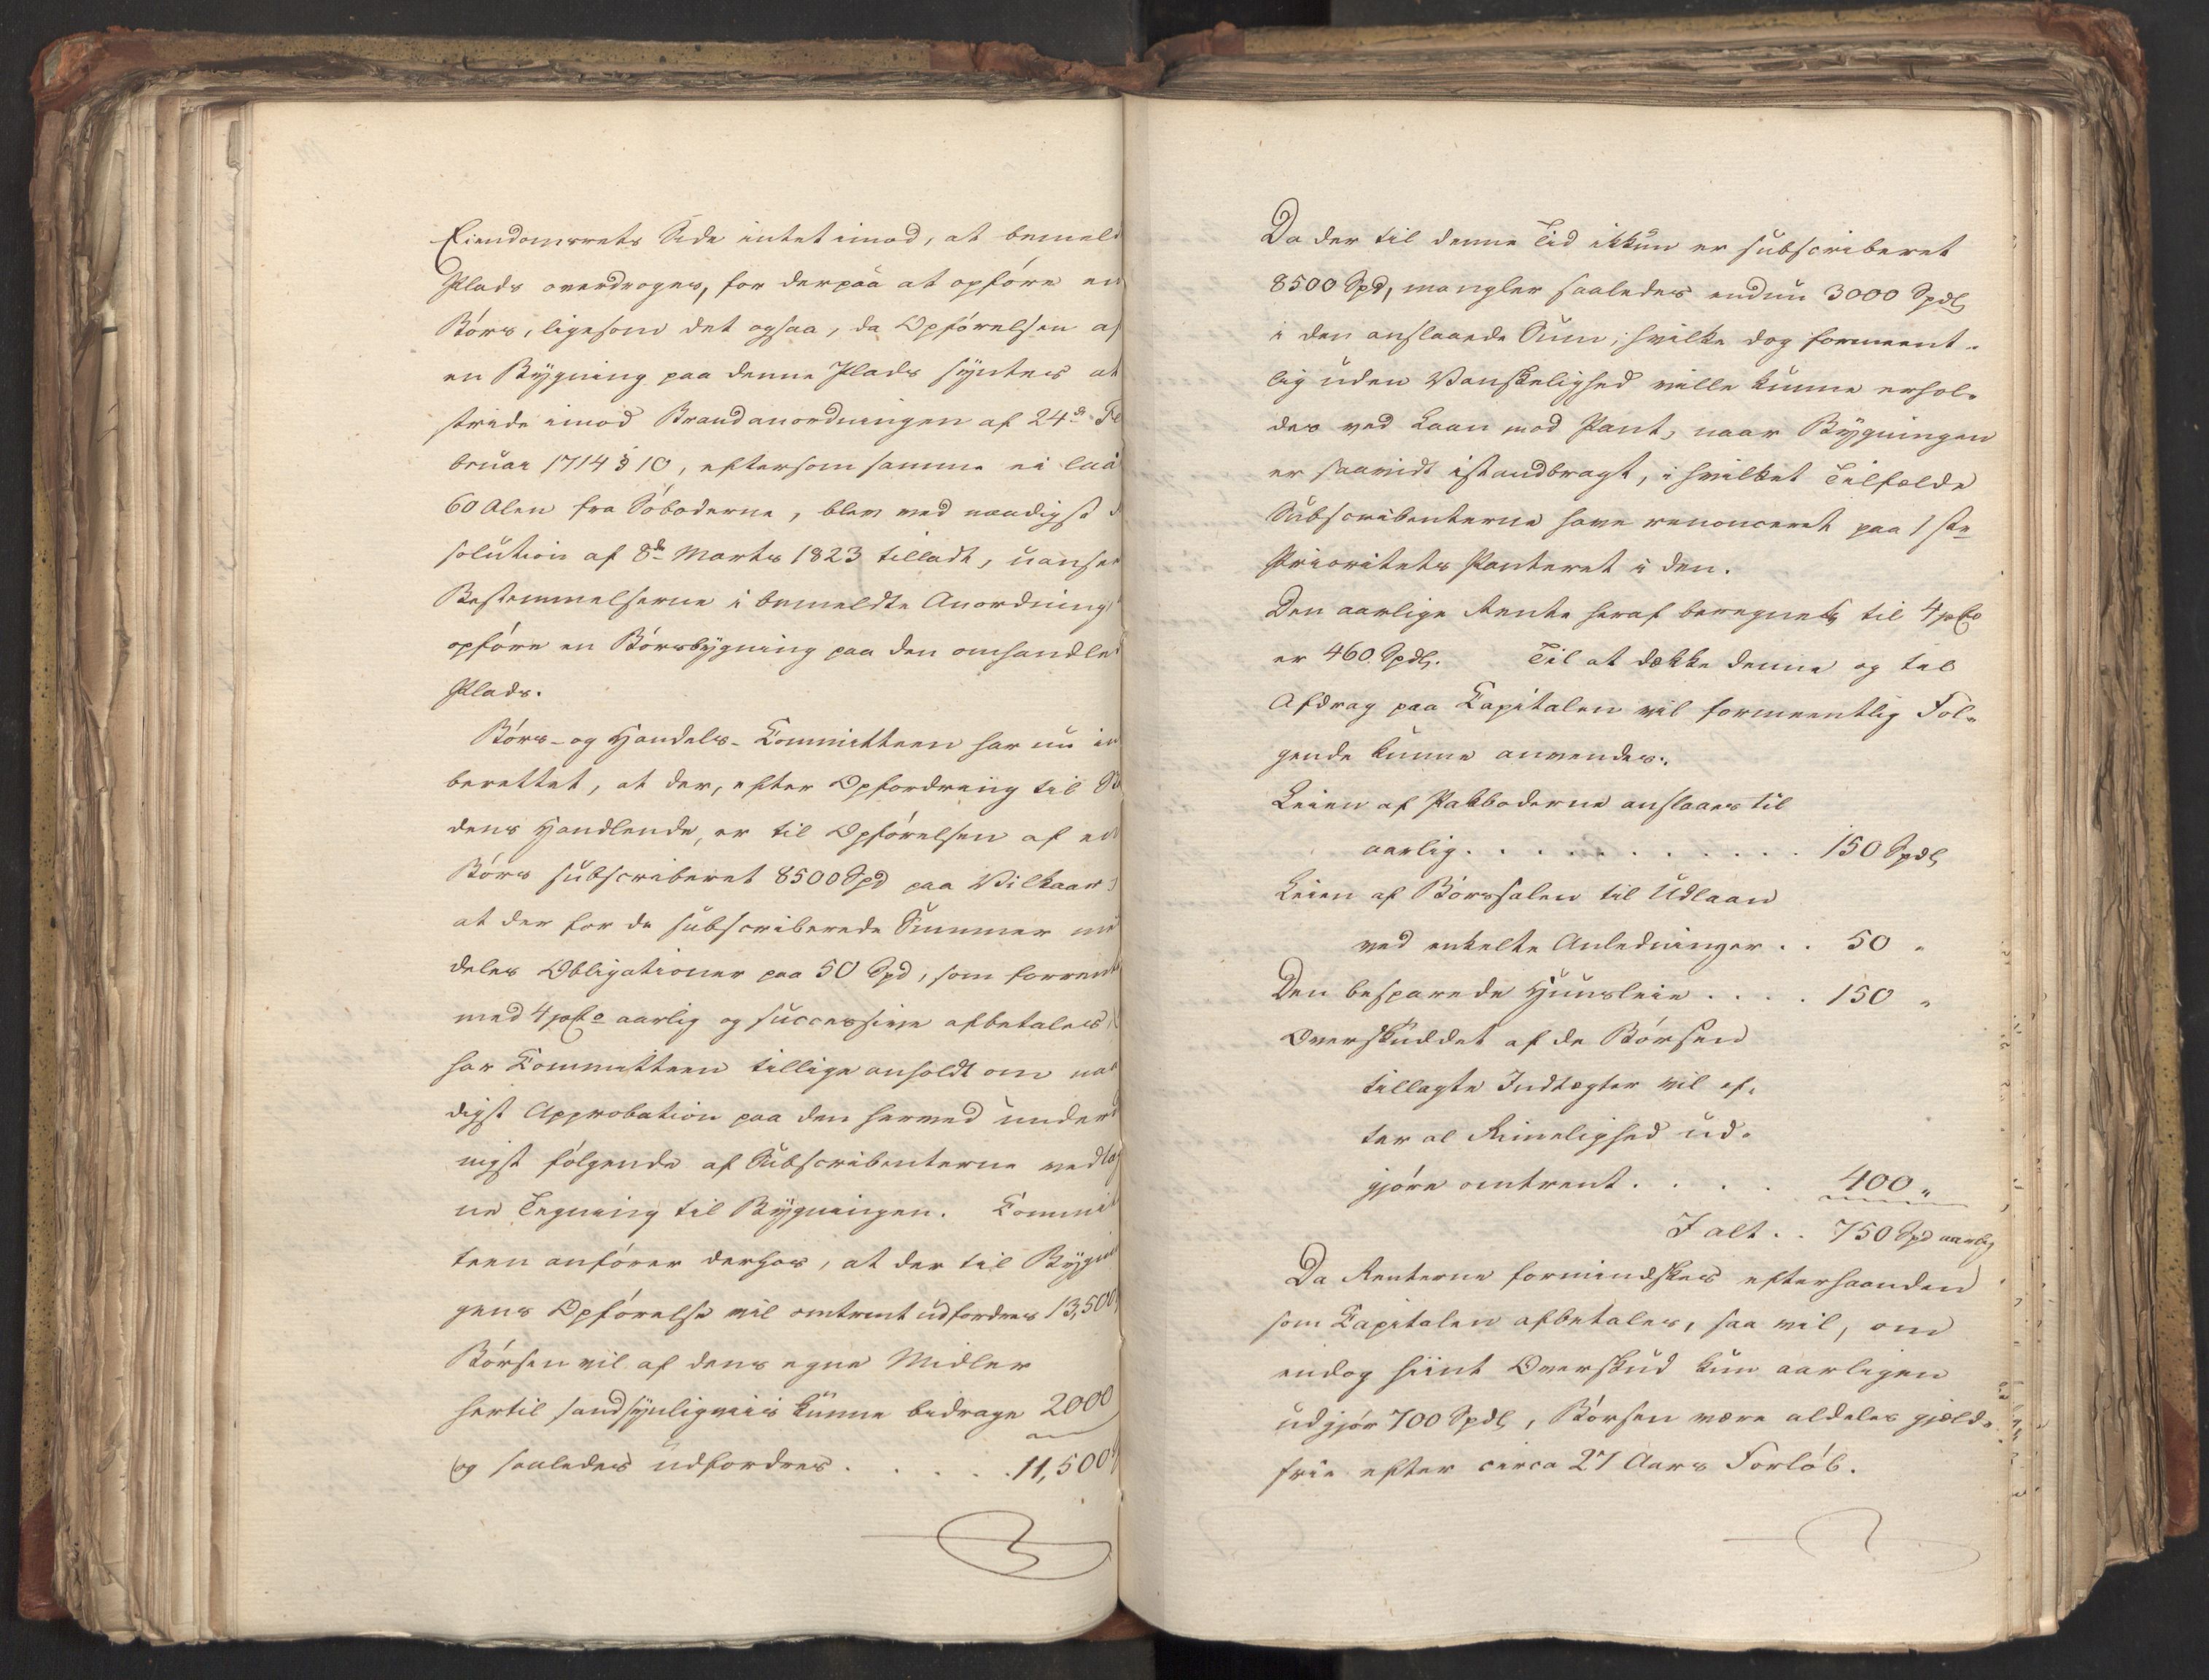 Eiendomsrets Side intet imod, at bemeld
Plads overdroges, for derpaa at opföre en
Börs, ligesom det ogsaa, da Opförelsen af
en Bygning paa denne Plads syntes at
stride imod Brandanordningen af 24de Fe
bruar 1714 § 10, eftersom samme ei laae
60 Alen fra Söboderne, blev ved naadigst
solution af 8de Marts 1823 tilladt, uanseet
Bestemmelserne i bemeldte Anordning
opföre en Börsbygning paa den omhandlede
Plads.
Börs- og Handels-Committeen har nu in
berettet, at der, efter Opfordring til Sta
dens Handlende, er til Opförelsen af en
Börs subscriberet 8500 Spd paa Vilkaar
at der for de subscriberede Summer med
deles Obligationer paa 50 Spd, som forrentes
med 4 pCto aarlig og successive afbetales,
har Committeen tillige anholdt om naa
digst Approbation paa den hermed underd
nigst fölgende af Subscribenterne vedtag
ne Tegning til Bygningen. Commit
teen anförer derhos, at der til Bygnin
gens Opförelse vil omtrent udfordres 13,500
Börsen vil af dens egne Midler
hertil sandsynligviis kunne bidrage 2000
og saaledes udfordres . . . . . 11,500
Da der til denne Tid ikkun er subscriberet
8500 Spd, mangler saaledes endnu 3000 Spdl
i den anslaaede Sum; hvilke dog formeent-
lig uden Vanskelighed ville kunne erhol-
des ved Laan mod Pant, naar Bygningen
er saavidt istandbragt, i hvilket Tilfælde
Subscribenterne have renonceret paa 1ste
Prioritets Panteret i den.
Den aarlige Rente heraf beregnet til 4 pCto
er 460 Spdl. Til at dække denne og til
Afdrag paa Capitalen vil formeentlig Föl-
gende kunne anvendes:
Leien af Pakboderne anslaaes til
aarlig . . . . . . . . . . . 150 Spdl
Leien af Börssalen til Udlaan
ved enkelte Anledninger . . 50 "
Den besparede Huusleie . . . . 150 "
Overskuddet af de Börsen
tillagte Indtægter vil ef-
ter al Rimelighed ud-
gjöre omtrent . . . . 400 "
I alt . . 750 Spd aarlig
Da Renterne formindskes efterhaanden
som Capitalen afbetales, saa vil, om
endog hiint Overskud kun aarligen
udgjör 700 Spdl, Börsen være aldeles gjæld-
frie efter circa 27 Aars Forlöb.